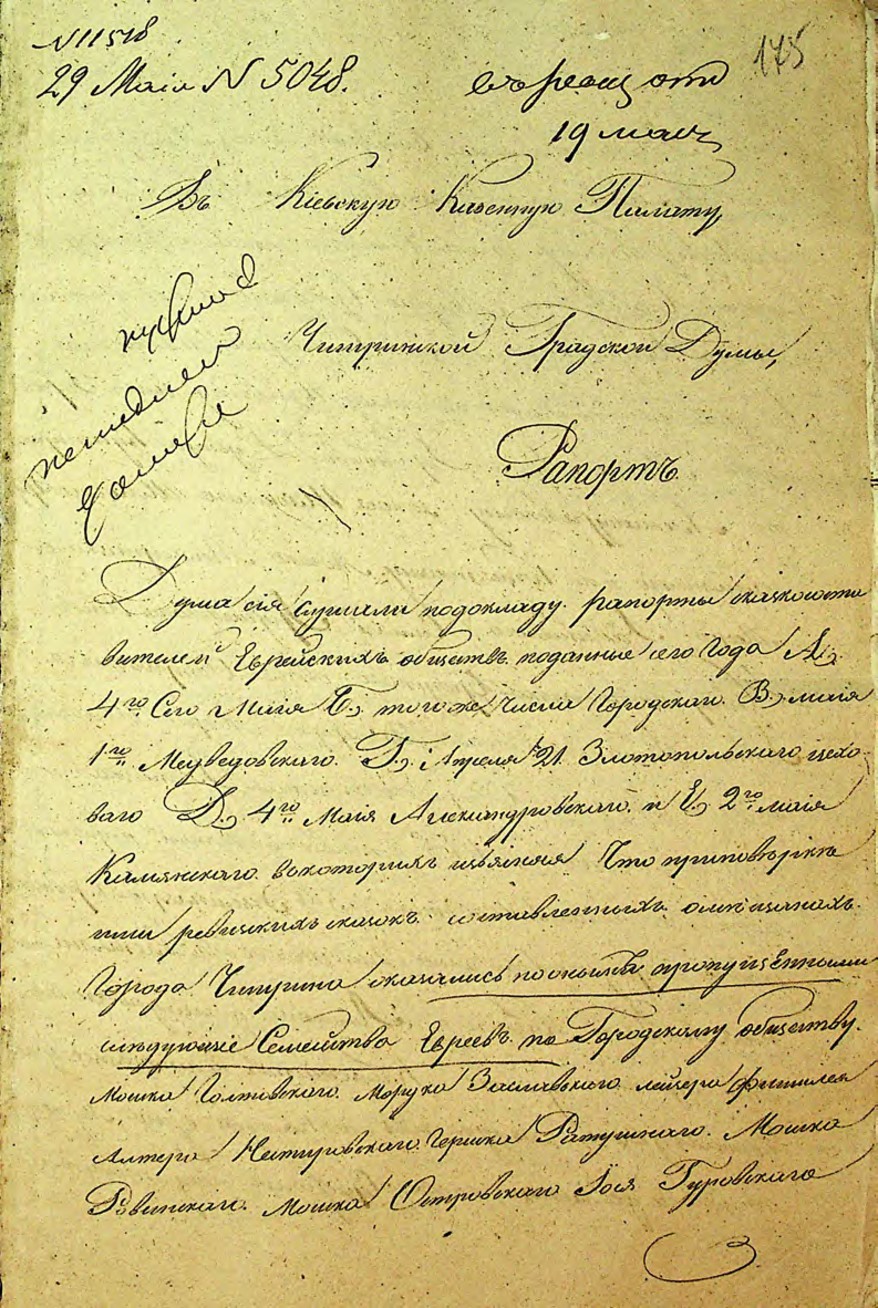 N 11578
175
29 Маія N 5048.
19 мая
Въ Кіевскую Казенную Палату,
Чигринской Градской Думы,
Рапортъ.
Дума сія слушали подокладу рапорты сказкососта
вителей Еврейскихъ обществъ поданные сего года А.,
4го Сего Маія Б., того же числа Городскаго В., маія
1го Медведовскаго. Г., Апреля 21 Златопольскаго цехо
ваго Д., 4го Маія Александровскаго и Е., 2го маія
Камянскаго вкоторыхъ изъясняя Что приповѣркѣ
ими ревизскихъ сказокъ составленныхъ омѣщанахъ
Города Чигрина оказались поошибкѣ пропущенными
слѣдующіе Семейства Евреевъ по Городскому обществу.
Мошка Голтвскаго Заславскаго лейзера
Алтера Немировскаго Гершка Ратушнаго. Мошка
Ровинскаго Мошка Островскаго Іося Гуровскаго